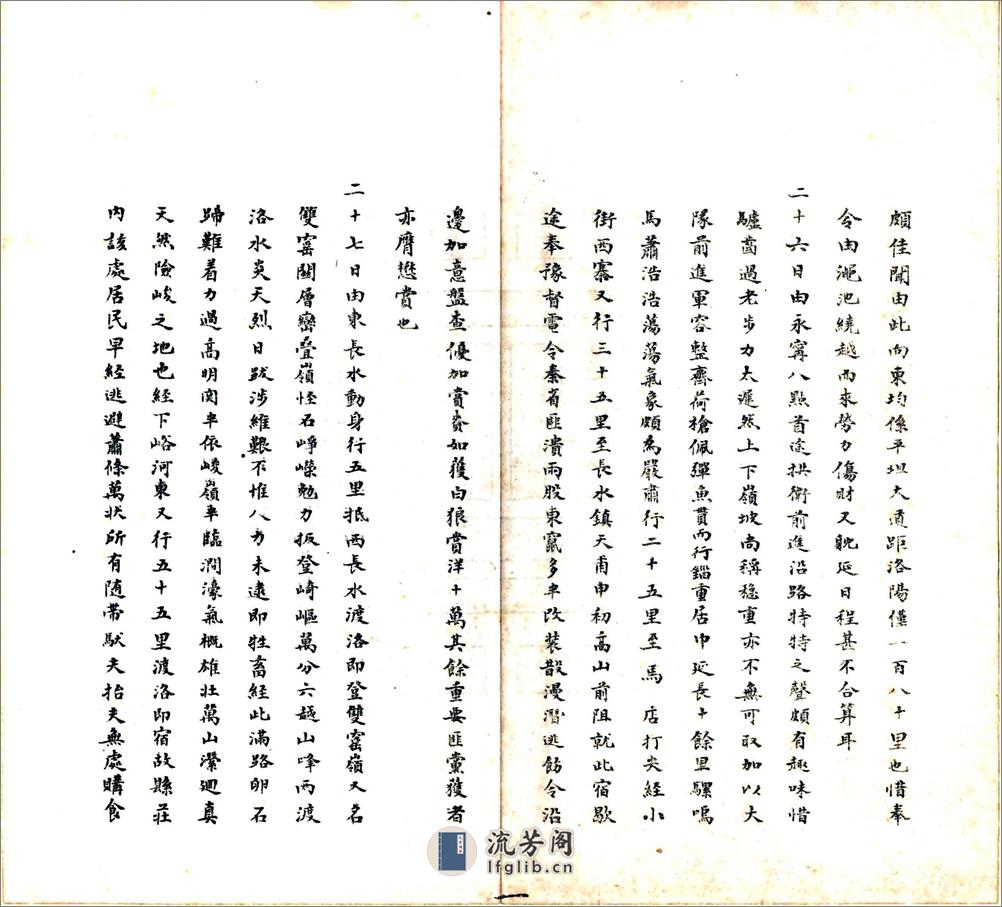 頗佳聞由此向東均係平坦大道距洛陽僅一百八十里也惜奉
令由澠池繞越而來勞力傷財又躭延日程甚不合算耳
二十六日由永寗八點首途拱衛前進沿路特特之聲頗有趣味惜
驢齒過老步力太遲然上下嶺坡尚稱穩重亦不無可取加以大
隊前進軍容整齊荷槍佩彈魚貫而行錙重居中延長十餘里騾鳴
馬蕭浩浩蕩蕩氣象頗為嚴肅行二十五里至馬 店打尖經小
街西寨又行三十五里至長水鎮天甫申初高山前阻就此宿歇
途奉豫督電令秦省匪潰兩股東竄多半改裝散漫潛逃飭令沿
邊加意盤查優加賞賚如獲白狼賞洋十萬其餘重要匪黨獲者
亦膺懋賞也
二十七日由東長水動身行五里抵西長水渡洛即登雙窰嶺又名
雙窰關層巒疊嶺怪石崢嶸勉力扳登崎嶇萬分六越山峰兩渡
洛水炎天烈日跋涉維艱不惟人力未逮即牲畜經此滿路卵石
蹄難着力過高明関半依峻嶺半臨澗濠氣概雄壯萬山瀠迴真
天然險峻之地也經下峪河東又行五十五里渡洛即宿故縣莊
內該處居民早經逃避蕭條萬狀所有隨帶馱夫抬夫無處購食
流芳阁
lfglib.cn